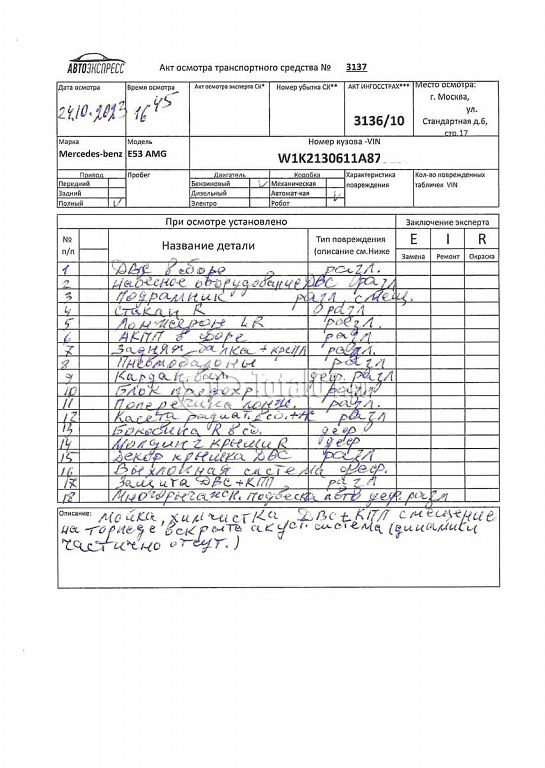 АВТОЭКСПРЕСС
Акт осмотра транспортного средства № 3137
Дата осмотра Время осмотра Акт осмотра эксперта СК* Номер убытка СК** АКТ ИНГОССТРАХ*** Место осмотра:
24.10.2023 16 45 3136/10 г. Москва,
ул.
Стандартная д.6,
стр.17
Марка Модель Номер кузова -VIN
Mercedes-benz E53 AMG W1K2130611A87
Привод Пробег Двигатель Коробка Характеристика повреждения Кол-во поврежденных табличек VIN
Передний Бензиновый V Механическая
Задний Дизельный Автомат-кая V
Полный V Электро Робот
При осмотре установлено Заключение эксперта
№ п/п Название детали Тип повреждения (описание см.Ниже E I R
Замена Ремонт Окраска
1 ДВС в сборе разл.
2 Навесное оборудование ДВС разл
3 Подрамник разл, смещ.
4 Стакан R разл
5 Лонжерон LR разл.
6 АКПП в сборе разл
7 Задняя балка + крепл разл.
8 Пневмобалоны разл
9 Кардан. вал деф. разл
10 Блок предохр. разл
11 Поперечина лонж. разл.
12 Касета радиат. в сб. разл
13 Боковина R в сб. деф
14 Молдинг крыши R деф
15 Декор крышка ДВС разл
16 Выхлопная система деф.
17 Защита ДВС+КПП разл
18 Многорычажн. подвеска деф. разл
Описание: Мойка, химчистка ДВС+КПП смещение
на торпеде вскрыта акуст. система (динамики
частично отсут.)